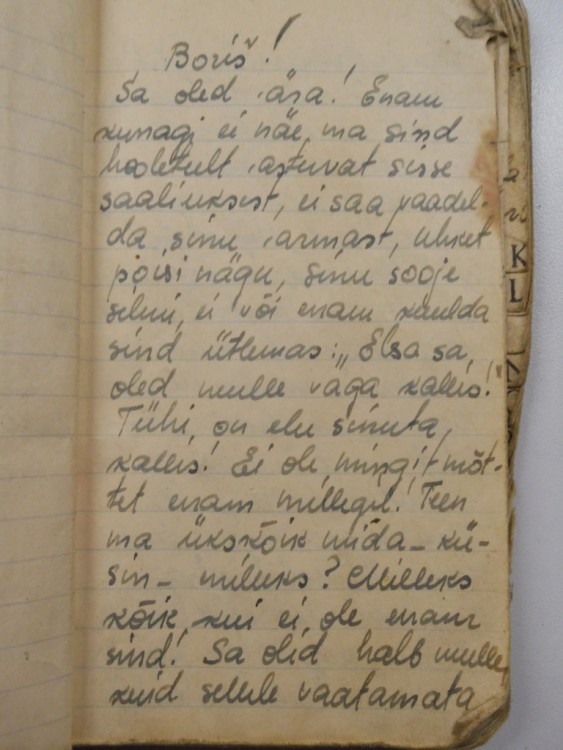 Boriš!
Sa oled ära! Enam
kunagi ei näe ma sind
hooletult astuvat sisse
saaliuksest, ei saa vaadel-
da sinu armast, uhket
poisi nägu, sinu sooje
silmi, ei või enam kuulda
sind ütlemas: „Elsa sa
oled mulle väga kallis!"
Tühi on elu sinuta,
kallis! Ei ole mingit mõt-
tet enam millegil! Teen
ma ükskõik mida – kü-
sin – milleks? Milleks
kõik, kui ei ole enam
sind! Sa olid halb mulle,
kuid sellele vaatamata
K
L